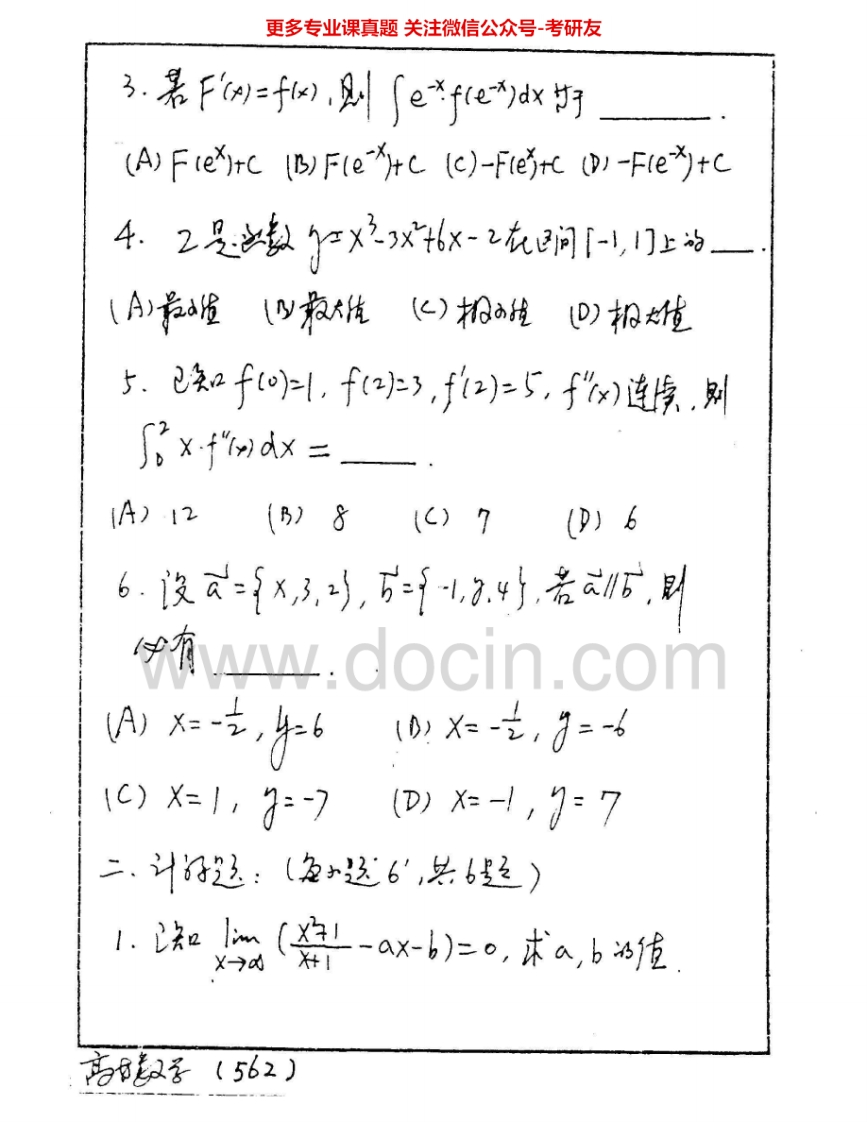 更多专业课真题 关注微信公众号-考研友
3. 若 F'(x)=f(x), 则 ∫e⁻ˣ·f(e⁻ˣ)dx 等于 ______.
(A) F(eˣ)+C (B) F(e⁻ˣ)+C (C) -F(eˣ)+C (D) -F(e⁻ˣ)+C
4. 2是函数 y=x³-3x²+6x-2在区间[-1,1]上的___.
(A)最小值 (B)最大值 (C)极小值 (D)极大值
5. 已知 f(0)=1, f(2)=3, f'(2)=5, f''(x)连续, 则
∫₀² x·f''(x)dx = ____.
(A) 12 (B) 8 (C) 7 (D) 6
6. 设 a⃗={x,3,2}, b⃗={-1,y,4}, 若 a⃗∥b⃗, 则
必有 ______.
www.docin.com
(A) x=-1/2, y=6 (B) x=-1/2, y=-6
(C) x=1, y=-7 (D) x=-1, y=7
二、计算题:(每小题6',共6题)
1. 已知 lim x→∞ ((x²+1)/(x+1) -ax-b)=0, 求a,b的值.
高等数学 (562)